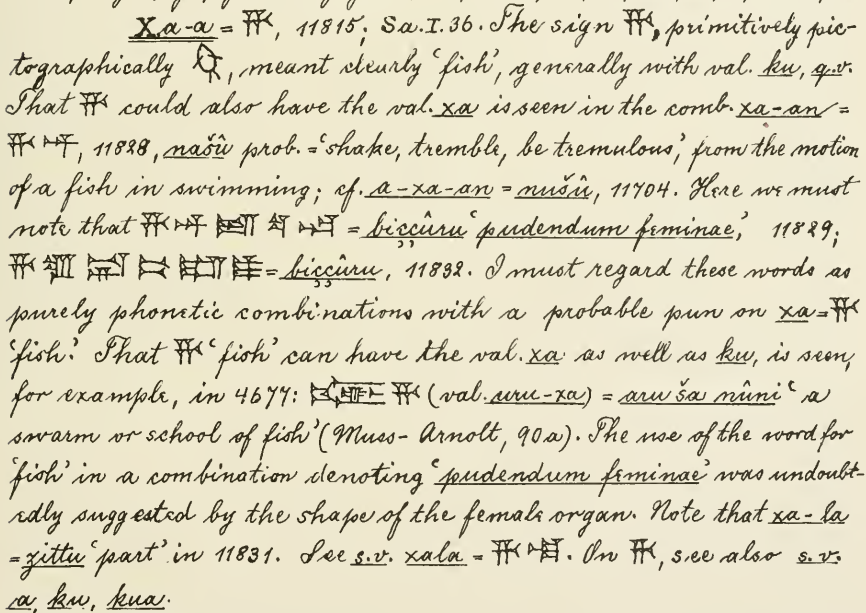 Xa-a = 𒄩, 11815; Sa. I. 36. The sign 𒄩, primitively pic-
tographically , meant clearly 'fish', generally with val. ku, q.v.
That 𒄩 could also have the val. xa is seen in the comb. xa-an =
𒄩 𒀭, 11828, našû prob. = 'shake, tremble, be tremulous,' from the motion
of a fish in swimming; cf. a-xa-an = nušû, 11704. Here we must
note that 𒄩 𒀭 = biççûru 'pudendum feminae,' 11829;
𒄩 = biççûru, 11832. I must regard these words as
purely phonetic combinations with a probable pun on xa = 𒄩
'fish.' That 𒄩 'fish' can have the val. xa as well as ku, is seen,
for example, in 4677: 𒄩 (val. uru-xa) = aru ša nûni 'a
swarm or school of fish' (Muss-Arnolt, 90a). The use of the word for
'fish' in a combination denoting 'pudendum feminae' was undoubt-
edly suggested by the shape of the female organ. Note that xa-la
= zittu 'part' in 11831. See s.v. xala = 𒄩 𒆷. On 𒄩, see also s.v.
a, ku, kua.